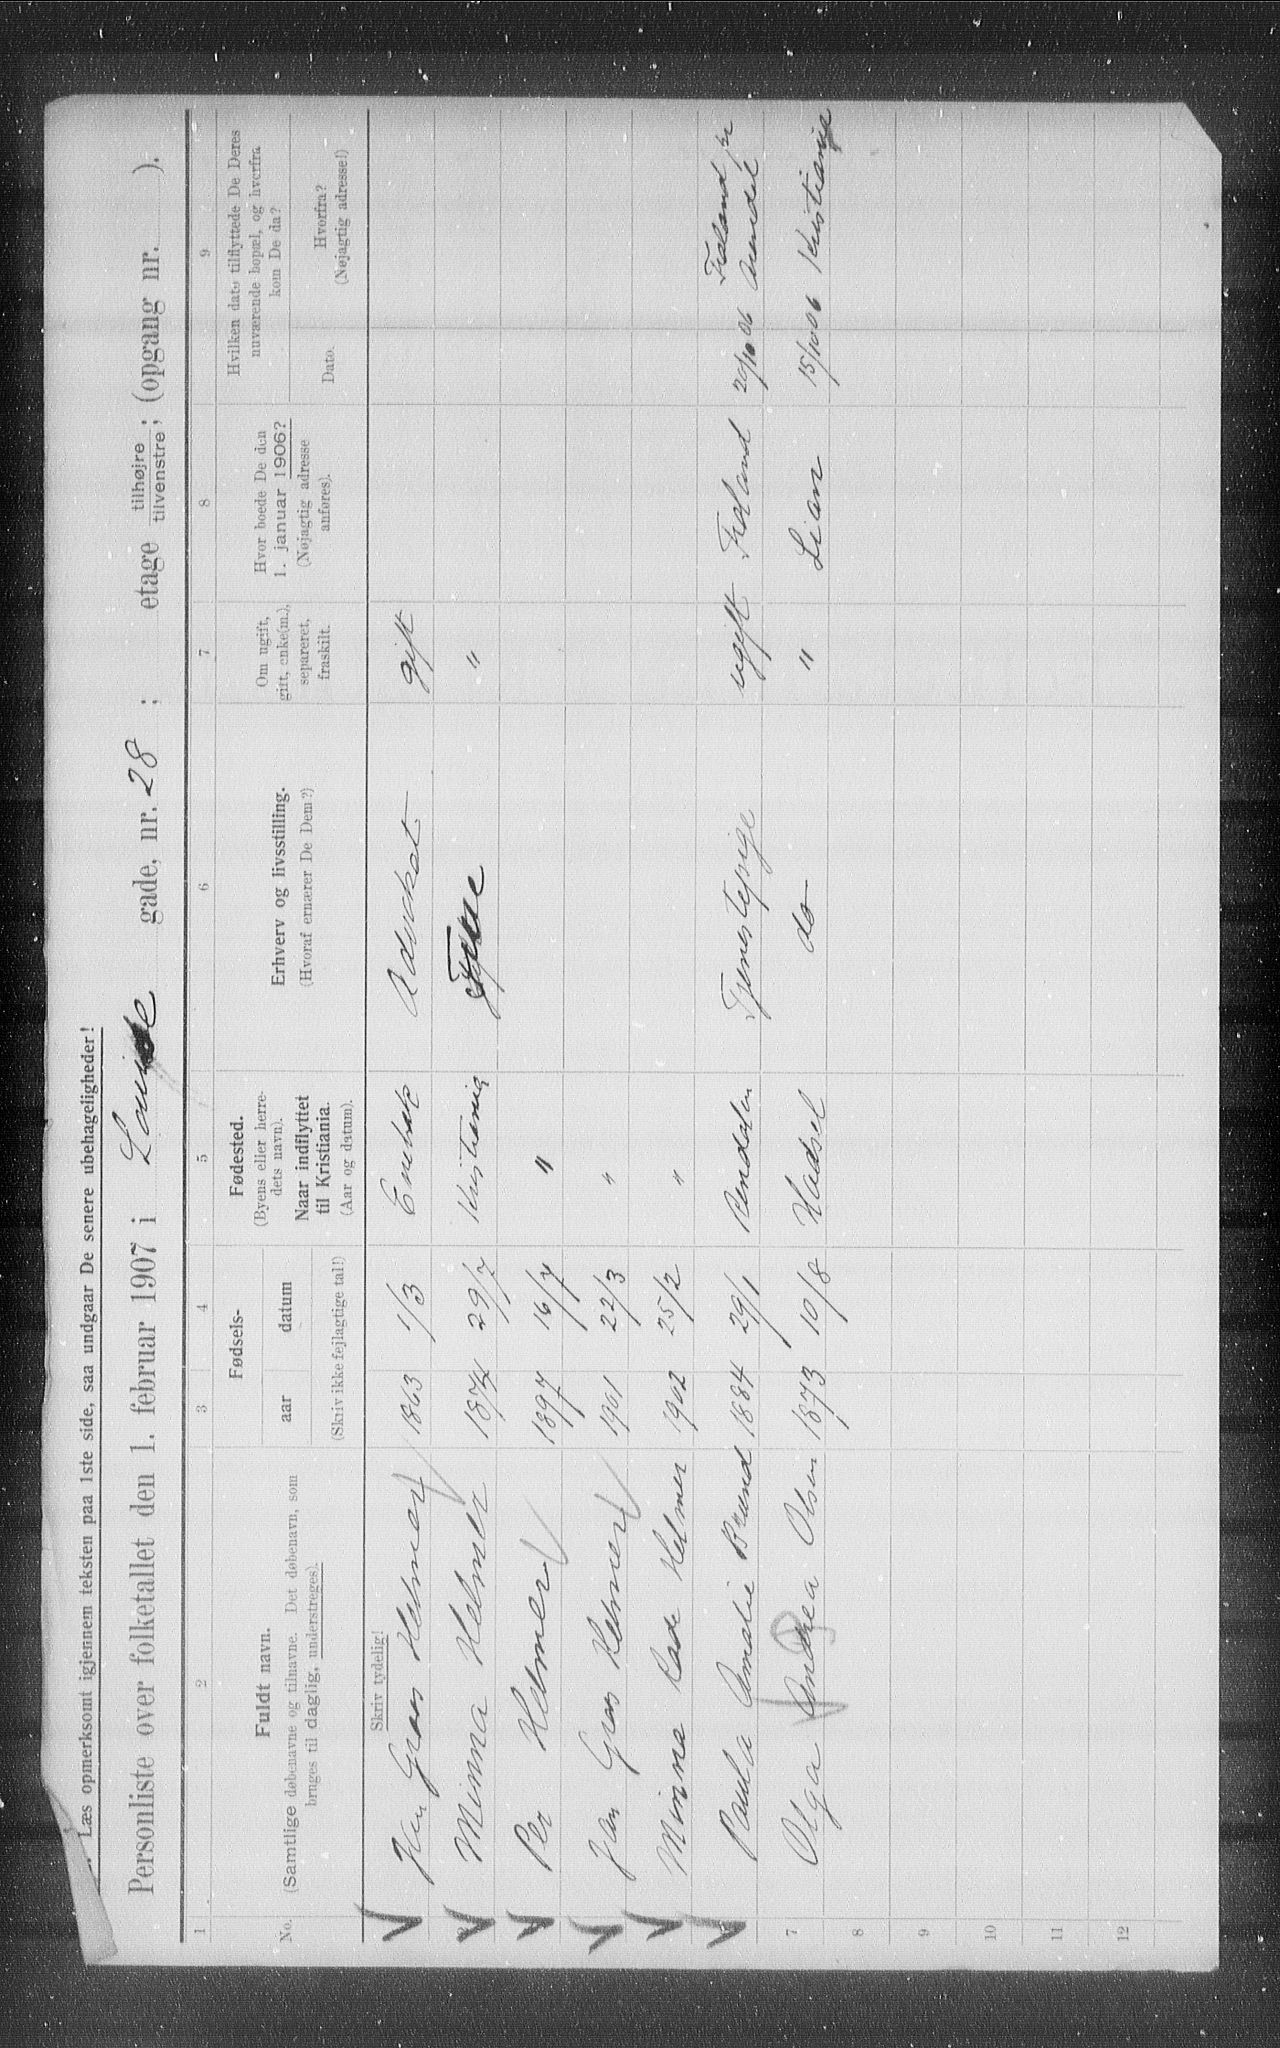 Læs opmerksomt igjennem teksten paa 1ste side, saa undgaar De senere ubehageligheder!
Personliste over folketallet den 1. februar 1907 i Louise gade, nr. 28 ; etage tilhøjre tilvenstre ; (opgang nr. ).
1 2 3 4 5 6 7 8 9
No.
Fuldt navn.
(Samtlige døbenavne og tilnavne. Det døbenavn, som
bruges til daglig, understreges).
Fødsels-
aar datum
(Skriv ikke fejlagtige tal!)
Fødested.
(Byens eller herre-
dets navn).
Naar indflyttet
til Kristiania.
(Aar og datum).
Erhverv og livsstilling.
(Hvoraf ernærer De Dem?)
Om ugift,
gift, enke(m.),
separeret,
fraskilt.
Hvor boede De den
1. januar 1906?
(Nøjagtig adresse
anføres).
Hvilken dato tilflyttede De Deres
nuværende bopæl, og hvorfra
kom De da?
Dato.
Hvorfra?
(Nøjagtig adresse!)
Skriv tydelig!
Helmer 1863 1/3 Advokat gift
Minna Helmer 1874 29/7 Kristiania "
Per Helmer 1897 16/7 "
Helmer 1901 22/3 "
Minna Helmer 1902 25/2 "
Paula Amalie Brund 1884 29/1 Tjenestepige ugift Froland 20/10 06 Froland pr
Arendal
7 Olga Andrea Olsen 1873 10/8 Hadsel do " Lian 15/10 06 Kristiania
8
9
10
11
12